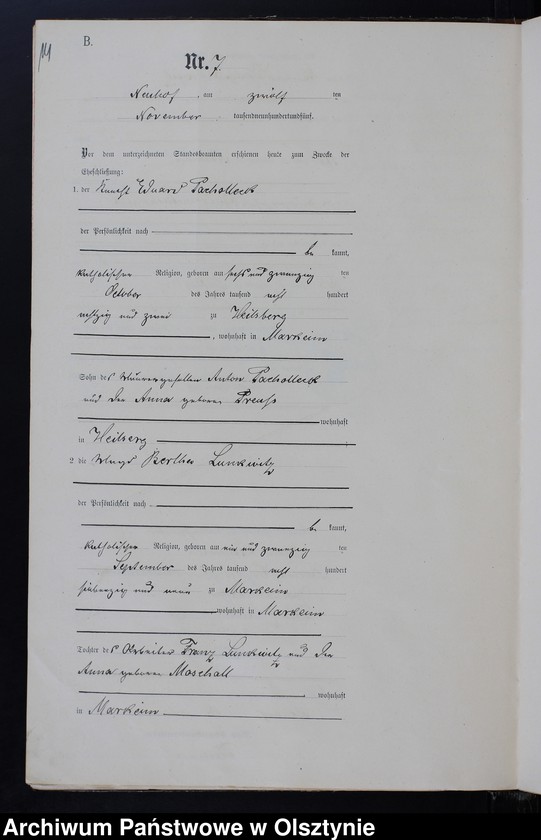 114
B.
Nr. 7.
Neuhof, am zwölf ten
November tausendneunhundertundfünf.
Vor dem unterzeichneten Standesbeamten erschienen heute zum Zwecke der
Eheschließung:
1. der Knecht Eduard Pacholleck
der Persönlichkeit nach
be kannt,
katholischer Religion, geboren am sechs und zwanzig ten
October des Jahres tausend acht hundert
achtzig und zwei zu Heilsberg
, wohnhaft in Markeim
Sohn des Maurergesellen Anton Pacholleck
und der Anna geborene Preuß
wohnhaft
in Heilsberg
2. die Magd Bertha Lunkwitz
der Persönlichkeit nach
be kannt,
katholischer Religion, geboren am ein und zwanzig ten
September des Jahres tausend acht hundert
siebenzig und neun zu Markeim
wohnhaft in Markeim
Tochter des Arbeiters Franz Lunkwitz und der
Anna geborene Maschall
wohnhaft
in Markeim
Archiwum Państwowe w Olsztynie